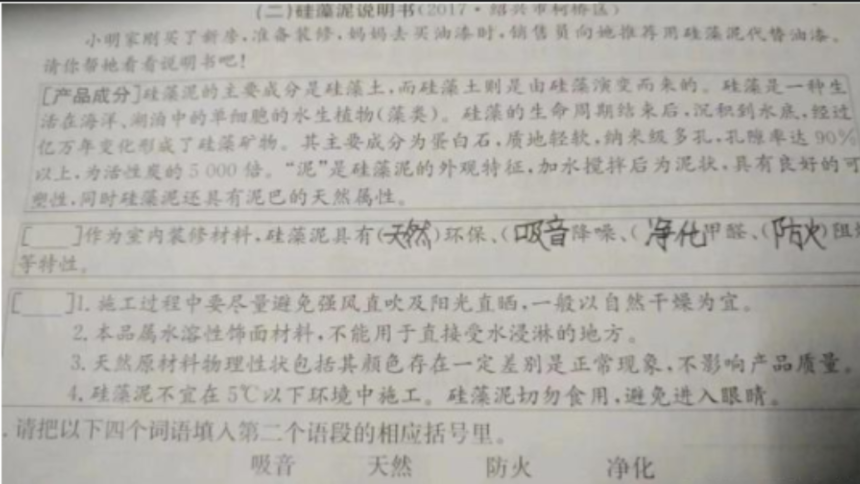 (二)硅藻泥说明书(2017·绍兴市柯桥区)
小明家刚买了新房,准备装修,妈妈去买油漆时,销售员向她推荐用硅藻泥代替油漆。
请你帮她看看说明书吧!
[产品成分]硅藻泥的主要成分是硅藻土,而硅藻土则是由硅藻演变而来的。硅藻是一种生
活在海洋、湖泊中的单细胞的水生植物(藻类)。硅藻的生命周期结束后,沉积到水底,经过
亿万年变化形成了硅藻矿物。其主要成分为蛋白石,质地轻软,纳米级多孔,孔隙率达90%
以上,为活性炭的5000倍。“泥”是硅藻泥的外观特征,加水搅拌后为泥状,具有良好的可
塑性,同时硅藻泥还具有泥巴的天然属性。
[ ]作为室内装修材料,硅藻泥具有(天然)环保、(吸音降噪、(净化甲醛、(防火)阻
等特性。
[ ]1.施工过程中要尽量避免强风直吹及阳光直晒,一般以自然干燥为宜。
2.本品属水溶性饰面材料,不能用于直接受水浸淋的地方。
3.天然原材料物理性状包括其颜色存在一定差别是正常现象,不影响产品质量。
4.硅藻泥不宜在5℃以下环境中施工。硅藻泥切勿食用,避免进入眼睛。
.请把以下四个词语填入第二个语段的相应括号里。
吸音 天然 防火 净化